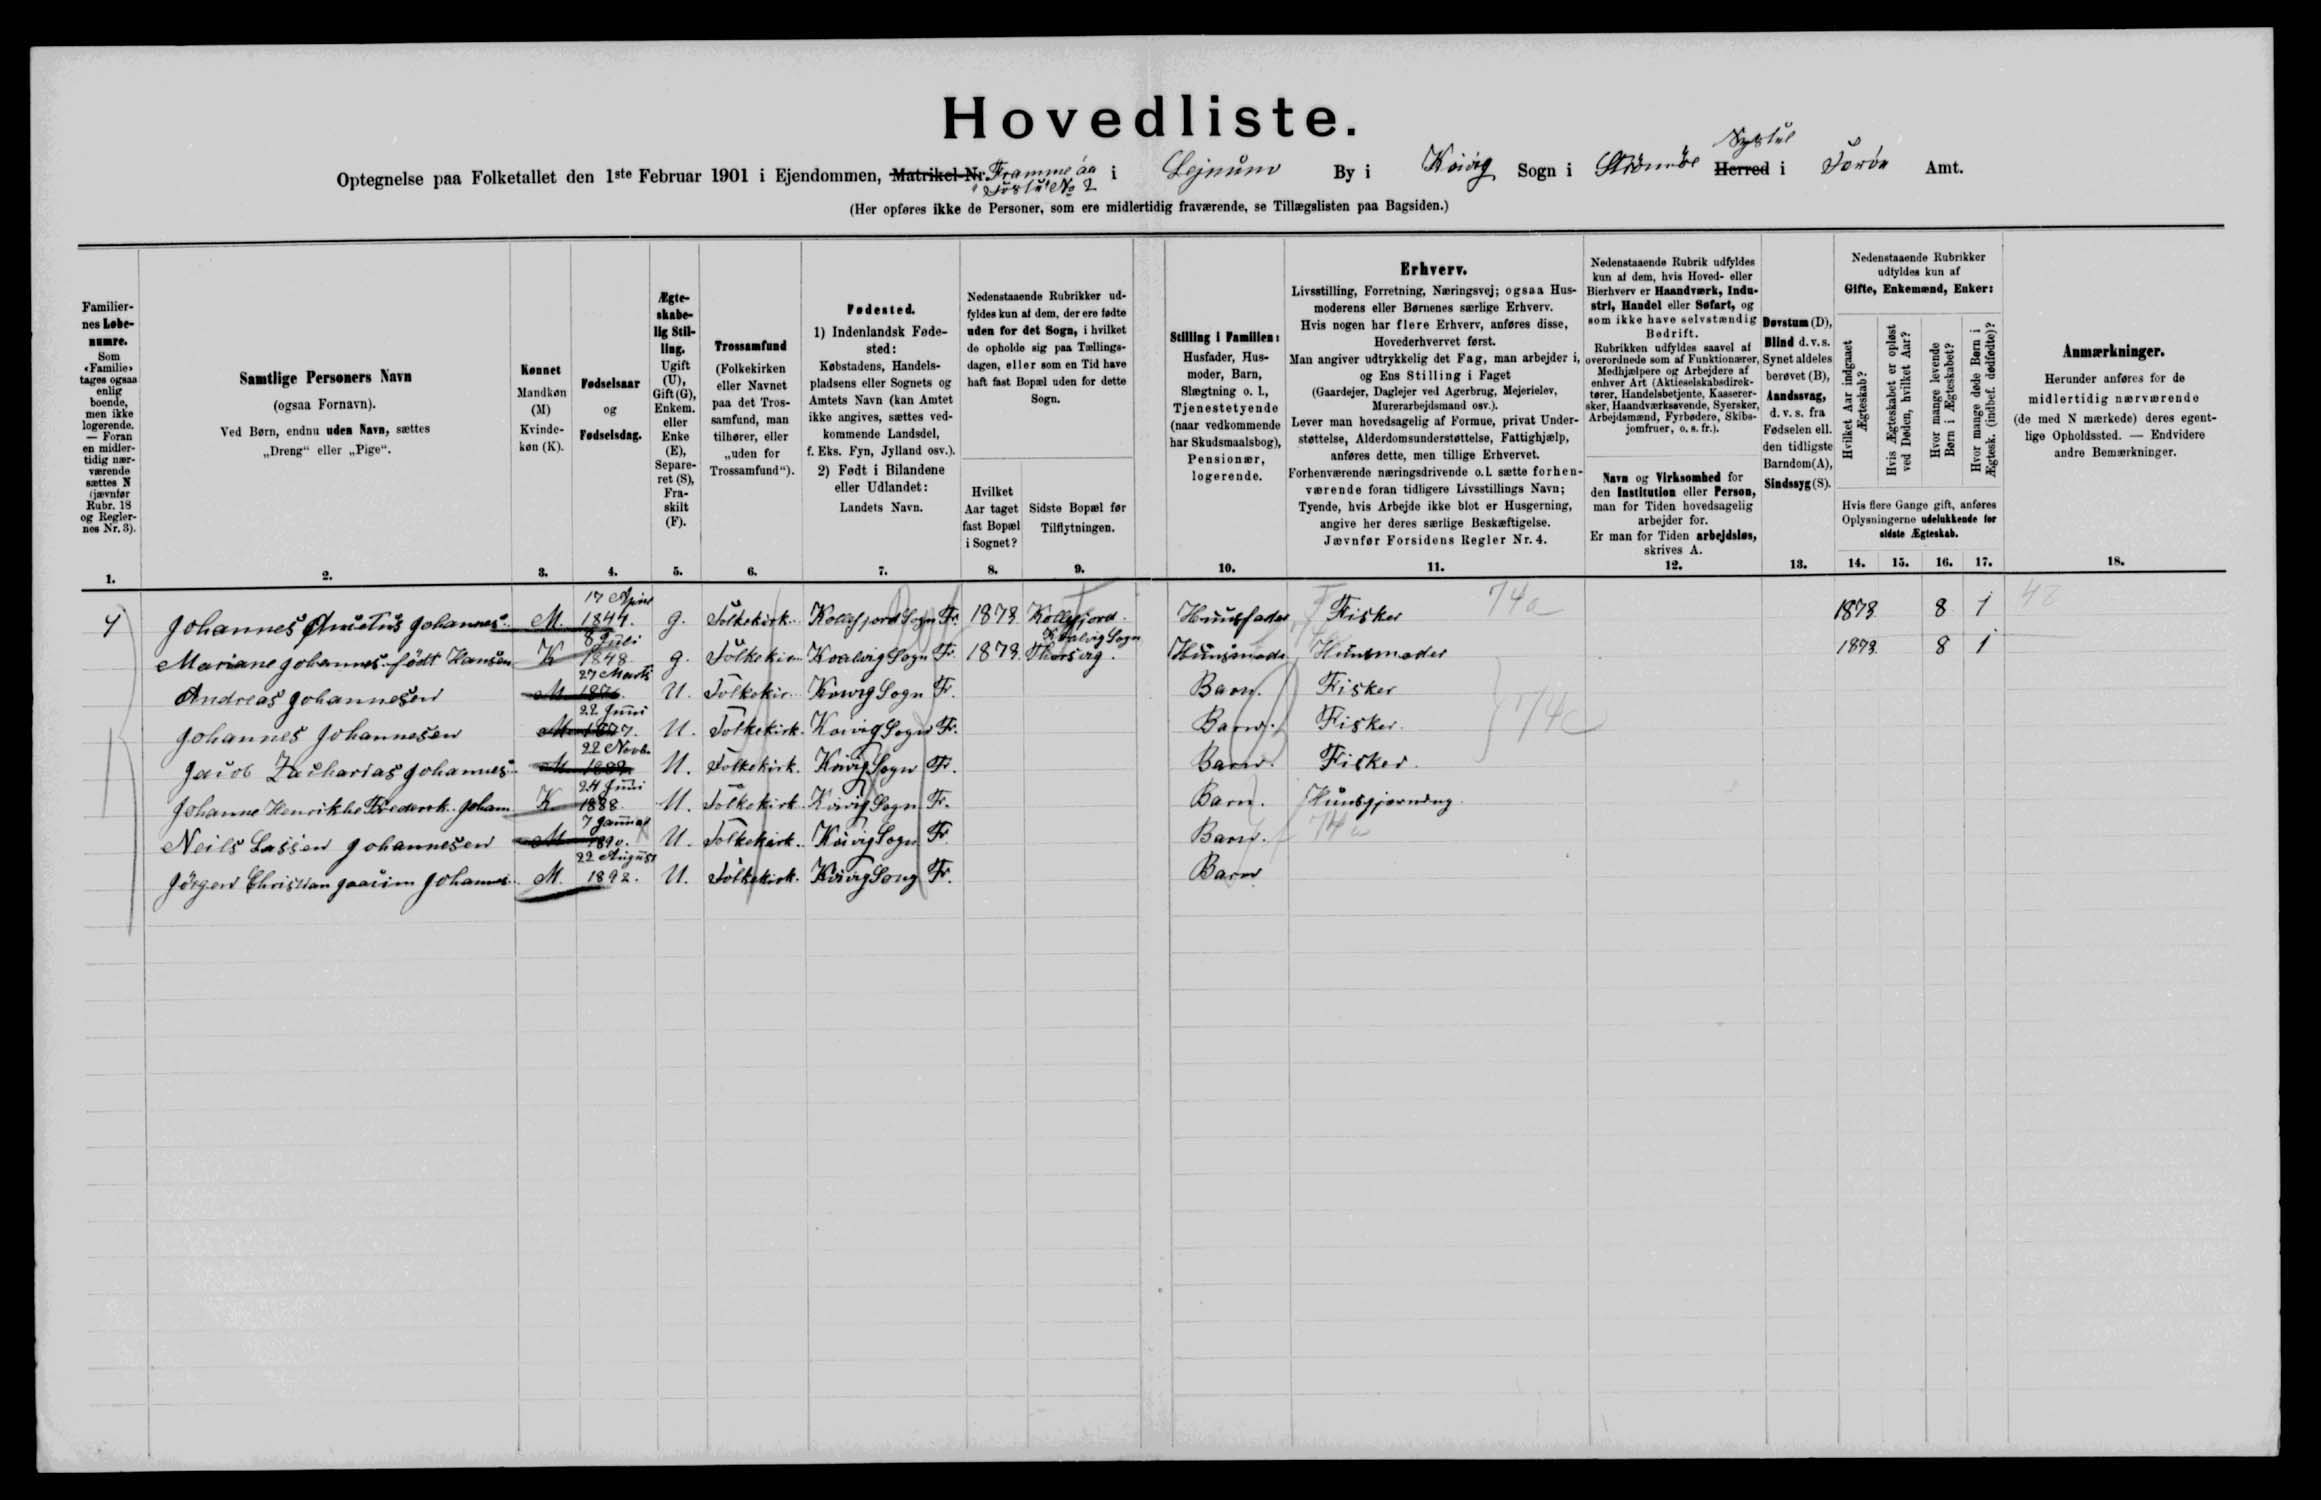 Hovedliste.
Optegnelse paa Folketallet den 1ste Februar 1901 i Ejendommen, Matrikel-Nr. Frammi áa i Lejnum By i Kvivig Sogn i Strömöe Syssel Herred i Færöe Amt.
No 2
(Her opføres ikke de Personer, som ere midlertidig fraværende, se Tillægslisten paa Bagsiden.)
Familiernes Løbenumre.
Som «Familie» tages ogsaa enlig boende, men ikke logerende. — Foran en midlertidig nærværende sættes N (jævnfør Rubr. 18 og Reglernes Nr. 3).
Samtlige Personers Navn
(ogsaa Fornavn).
Ved Børn, endnu uden Navn, sættes
„Dreng“ eller „Pige“.
Kønnet
Mandkøn (M)
Kvindekøn (K).
Fødselsaar
og
Fødselsdag.
Ægteskabelig Stilling.
Ugift (U), Gift (G), Enkem. eller Enke (E), Separeret (S), Fraskilt (F).
Trossamfund
(Folkekirken eller Navnet paa det Trossamfund, man tilhører, eller „uden for Trossamfund“).
Fødested.
1) Indenlandsk Fødested:
Købstadens, Handelspladsens eller Sognets og Amtets Navn (kan Amtet ikke angives, sættes vedkommende Landsdel, f. Eks. Fyn, Jylland osv.).
2) Født i Bilandene eller Udlandet:
Landets Navn.
Nedenstaaende Rubrikker udfyldes kun af dem, der ere fødte uden for det Sogn, i hvilket de opholde sig paa Tællingsdagen, eller som en Tid have haft fast Bopæl uden for dette Sogn.
Hvilket Aar taget fast Bopæl i Sognet?
Sidste Bopæl før Tilflytningen.
Stilling i Familien:
Husfader, Husmoder, Barn, Slægtning o. l., Tjenestetyende (naar vedkommende har Skudsmaalsbog), Pensionær, logerende.
Erhverv.
Livsstilling, Forretning, Næringsvej; ogsaa Husmoderens eller Børnenes særlige Erhverv.
Hvis nogen har flere Erhverv, anføres disse, Hovederhvervet først.
Man angiver udtrykkelig det Fag, man arbejder i, og Ens Stilling i Faget
(Gaardejer, Daglejer ved Agerbrug, Mejerielev, Murerarbejdsmand osv.).
Lever man hovedsagelig af Formue, privat Understøttelse, Alderdomsunderstøttelse, Fattighjælp, anføres dette, men tillige Erhvervet.
Forhenværende næringsdrivende o. l. sætte forhenværende foran tidligere Livsstillings Navn;
Tyende, hvis Arbejde ikke blot er Husgerning, angive her deres særlige Beskæftigelse.
Jævnfør Forsidens Regler Nr. 4.
Nedenstaaende Rubrik udfyldes kun af dem, hvis Hoved- eller Bierhverv er Haandværk, Industri, Handel eller Søfart, og som ikke have selvstændig Bedrift.
Rubrikken udfyldes saavel af overordnede som af Funktionærer, Medhjælpere og Arbejdere af enhver Art (Aktieselskabsdirektører, Handelsbetjente, Kasserersker, Haandværkssvende, Syersker, Arbejdsmænd, Fyrbødere, Skibsjomfruer, o. s. fr.).
Navn og Virksomhed for den Institution eller Person, man for Tiden hovedsagelig arbejder for.
Er man for Tiden arbejdsløs, skrives A.
Døvstum (D),
Blind d. v. s. Synet aldeles berøvet (B),
Aandssvag, d. v. s. fra Fødselen ell. den tidligste Barndom (A),
Sindssyg (S).
Nedenstaaende Rubrikker udfyldes kun af
Gifte, Enkemænd, Enker:
Hvilket Aar indgaaet Ægteskab?
Hvis Ægteskabet er opløst ved Døden, hvilket Aar?
Hvor mange levende Børn i Ægteskabet?
Hvor mange døde Børn i Ægtesk. (indbef. dødfødte)?
Hvis flere Gange gift, anføres Oplysningerne udelukkende for sidste Ægteskab.
Anmærkninger.
Herunder anføres for de midlertidig nærværende (de med N mærkede) deres egentlige Opholdssted. — Endvidere andre Bemærkninger.
1. 2. 3. 4. 5. 6. 7. 8. 9. 10. 11. 12. 13. 14. 15. 16. 17. 18.
Johannes Johannes. M. 17 April 1844. g. Folkekirk. Kollefjord Sogn Fr. 1873 Kollefjord. Huusfader Fisker 74a 1873 8 1 48
Mariane Johannes. födt Hansen K 8 Juli 1848 g. Folkekir Kvalvig Sogn Fr. 1873. Kvalvig Sogn Thorsvig. Huusmoder Huusmoder 1873 8 1
Andreas Johannesen M 27 Marts 1876. U. Folkekir Kvivig Sogn Fr. Barn. Fisker
Johannes Johannesen M 22 Juni 1877. U. Folkekirk. Kvivig Sogn Fr. Barn. Fisker. 74c
Jacob Zacharias Johannes M 22 Novb. U. Folkekirk. Kvivig Sogn Fr. Barn. Fisker.
Johanne Henrikke Frederik. Joham K 24 Juni 1888 U. Folkekirk. Kvivig Sogn Fr. Barn. Huusgjerning.
Neils Lassen Johannesen M 7 Januar 1890. U. Folkekirk. Kvivig Sogn Fr. Barn. 74a
Jörgen Christian Joacim Johannes. M. 22 August 1892. U. Folkekirk. Kvivig Song Fr. Barn